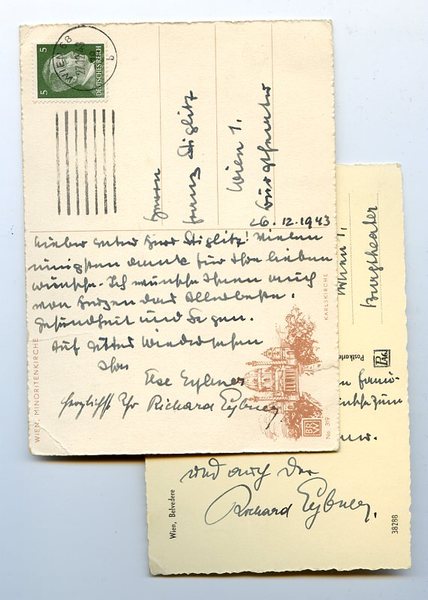 WIEN 68
5
5
DEUTSCHES REICH
b
Herrn
Franz Diglitz
Wien 1.
Burgtheater
26.12.1943
Lieber guter Herr Diglitz! Vielen
innigsten Dank für Ihre lieben
Wünsche. Ich wünsche Ihnen auch
von Herzen das Allerbeste.
Gesundheit und Segen.
Auf Wiedersehen
Ihre
Else Eybner
herzlichst Ihr Richard Eybner
WIEN, MINORITENKIRCHE
KARLSKIRCHE
Nr. 319
Wien 1,
Burgtheater
Postkarte
zum
und auch Ihr
Richard Eybner.
Wien, Belvedere
38288